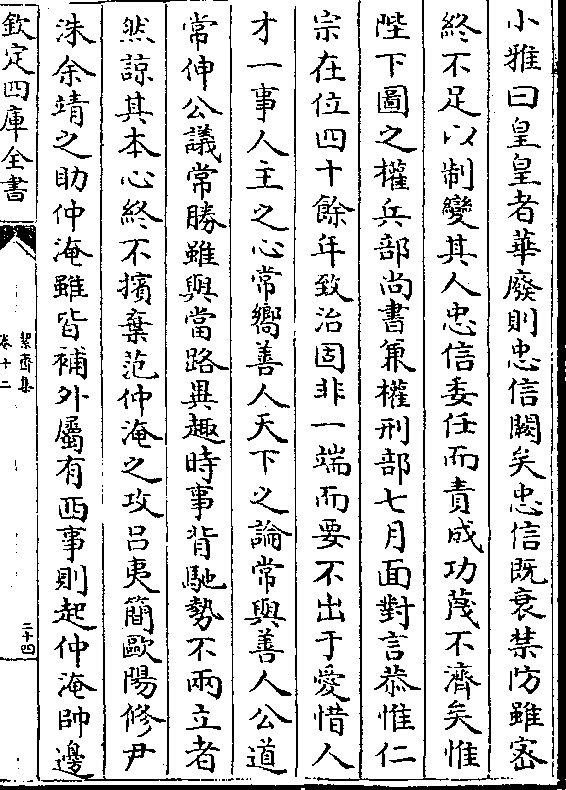 小雅曰皇皇者華廢則忠信闕矣忠信既衰禁防雖密
終不足以制變其人忠信委任而責成功蔑不濟矣惟
陛下圖之權兵部尚書兼權刑部七月面對言恭惟仁
宗在位四十餘年致治固非一端而要不出于愛惜人
才一事人主之心常嚮善人天下之論常與善人公道
常伸公議常勝雖與當路異趣時事背馳勢不兩立者
然諒其本心終不擯棄范仲淹之攻吕夷簡歐陽修尹
洙余靖之助仲淹雖皆補外屬有西事則起仲淹帥邊
欽定四庫全書
絜齋集
卷十二
二十四